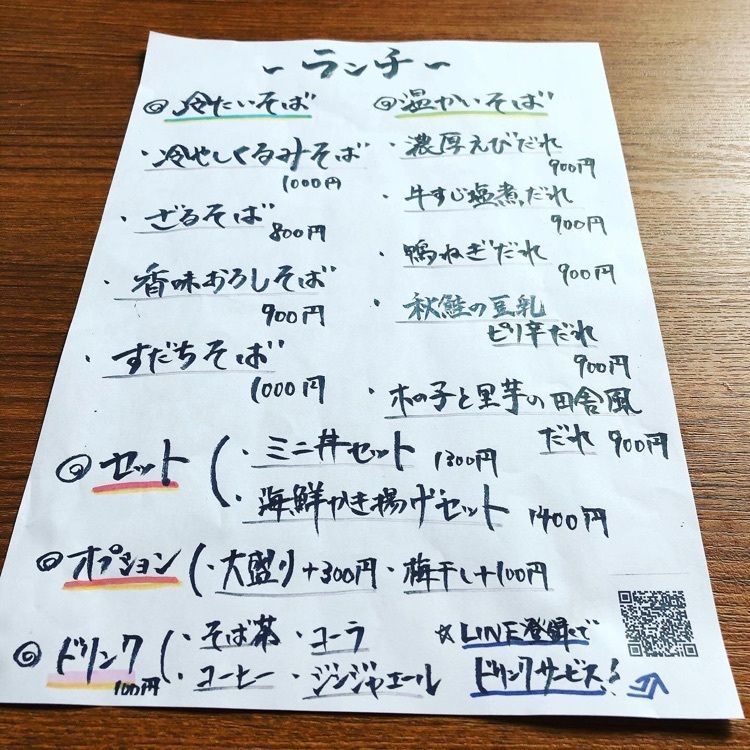 ~ランチ~
◎冷たいそば
・冷やしくるみそば
1000円
・ざるそば
800円
・香味おろしそば
900円
・すだちそば
1000円
◎温かいそば
・濃厚えびだれ
900円
・牛すじ塩煮だれ
900円
・鴨ねぎだれ
900円
・秋鮭の豆乳
ピリ辛だれ
900円
・木の子と里芋の田舎風
だれ 900円
◎セット(・ミニ丼セット 1300円
・海鮮かき揚げセット 1400円
◎オプション(・大盛り+300円・梅干し+100円
◎ドリンク(・そば茶・コーラ
100円 ・コーヒー・ジンジャエール
☆LINE登録で
ドリンクサービス!